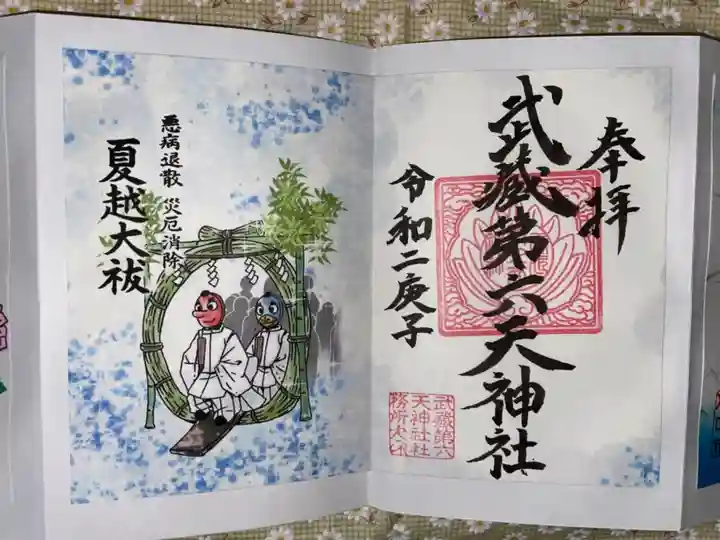 奉拝
武蔵第六天神社
令和二庚子
武蔵第六
天神社社
務所之印
夏越大祓
悪病退散 災厄消除